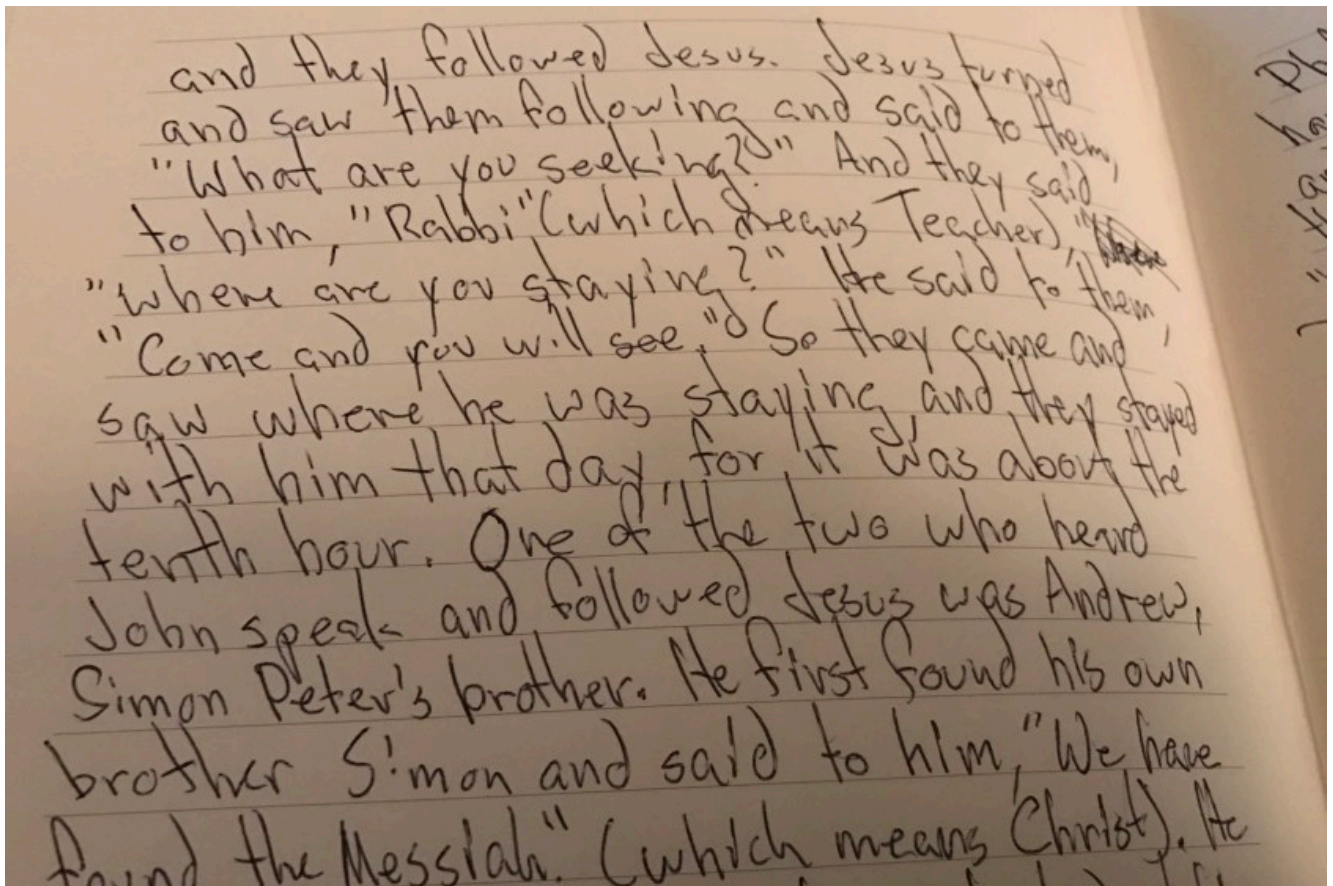 and they followed Jesus. Jesus turned
and saw them following and said to them,
"What are you seeking?" And they said
to him, "Rabbi" (which means Teacher),
"where are you staying?" He said to them,
"Come and you will see." So they came and
saw where he was staying, and they stayed
with him that day, for it was about the
tenth hour. One of the two who heard
John speak and followed Jesus was Andrew,
Simon Peter's brother. He first found his own
brother Simon and said to him, "We have
found the Messiah." (which means Christ). He